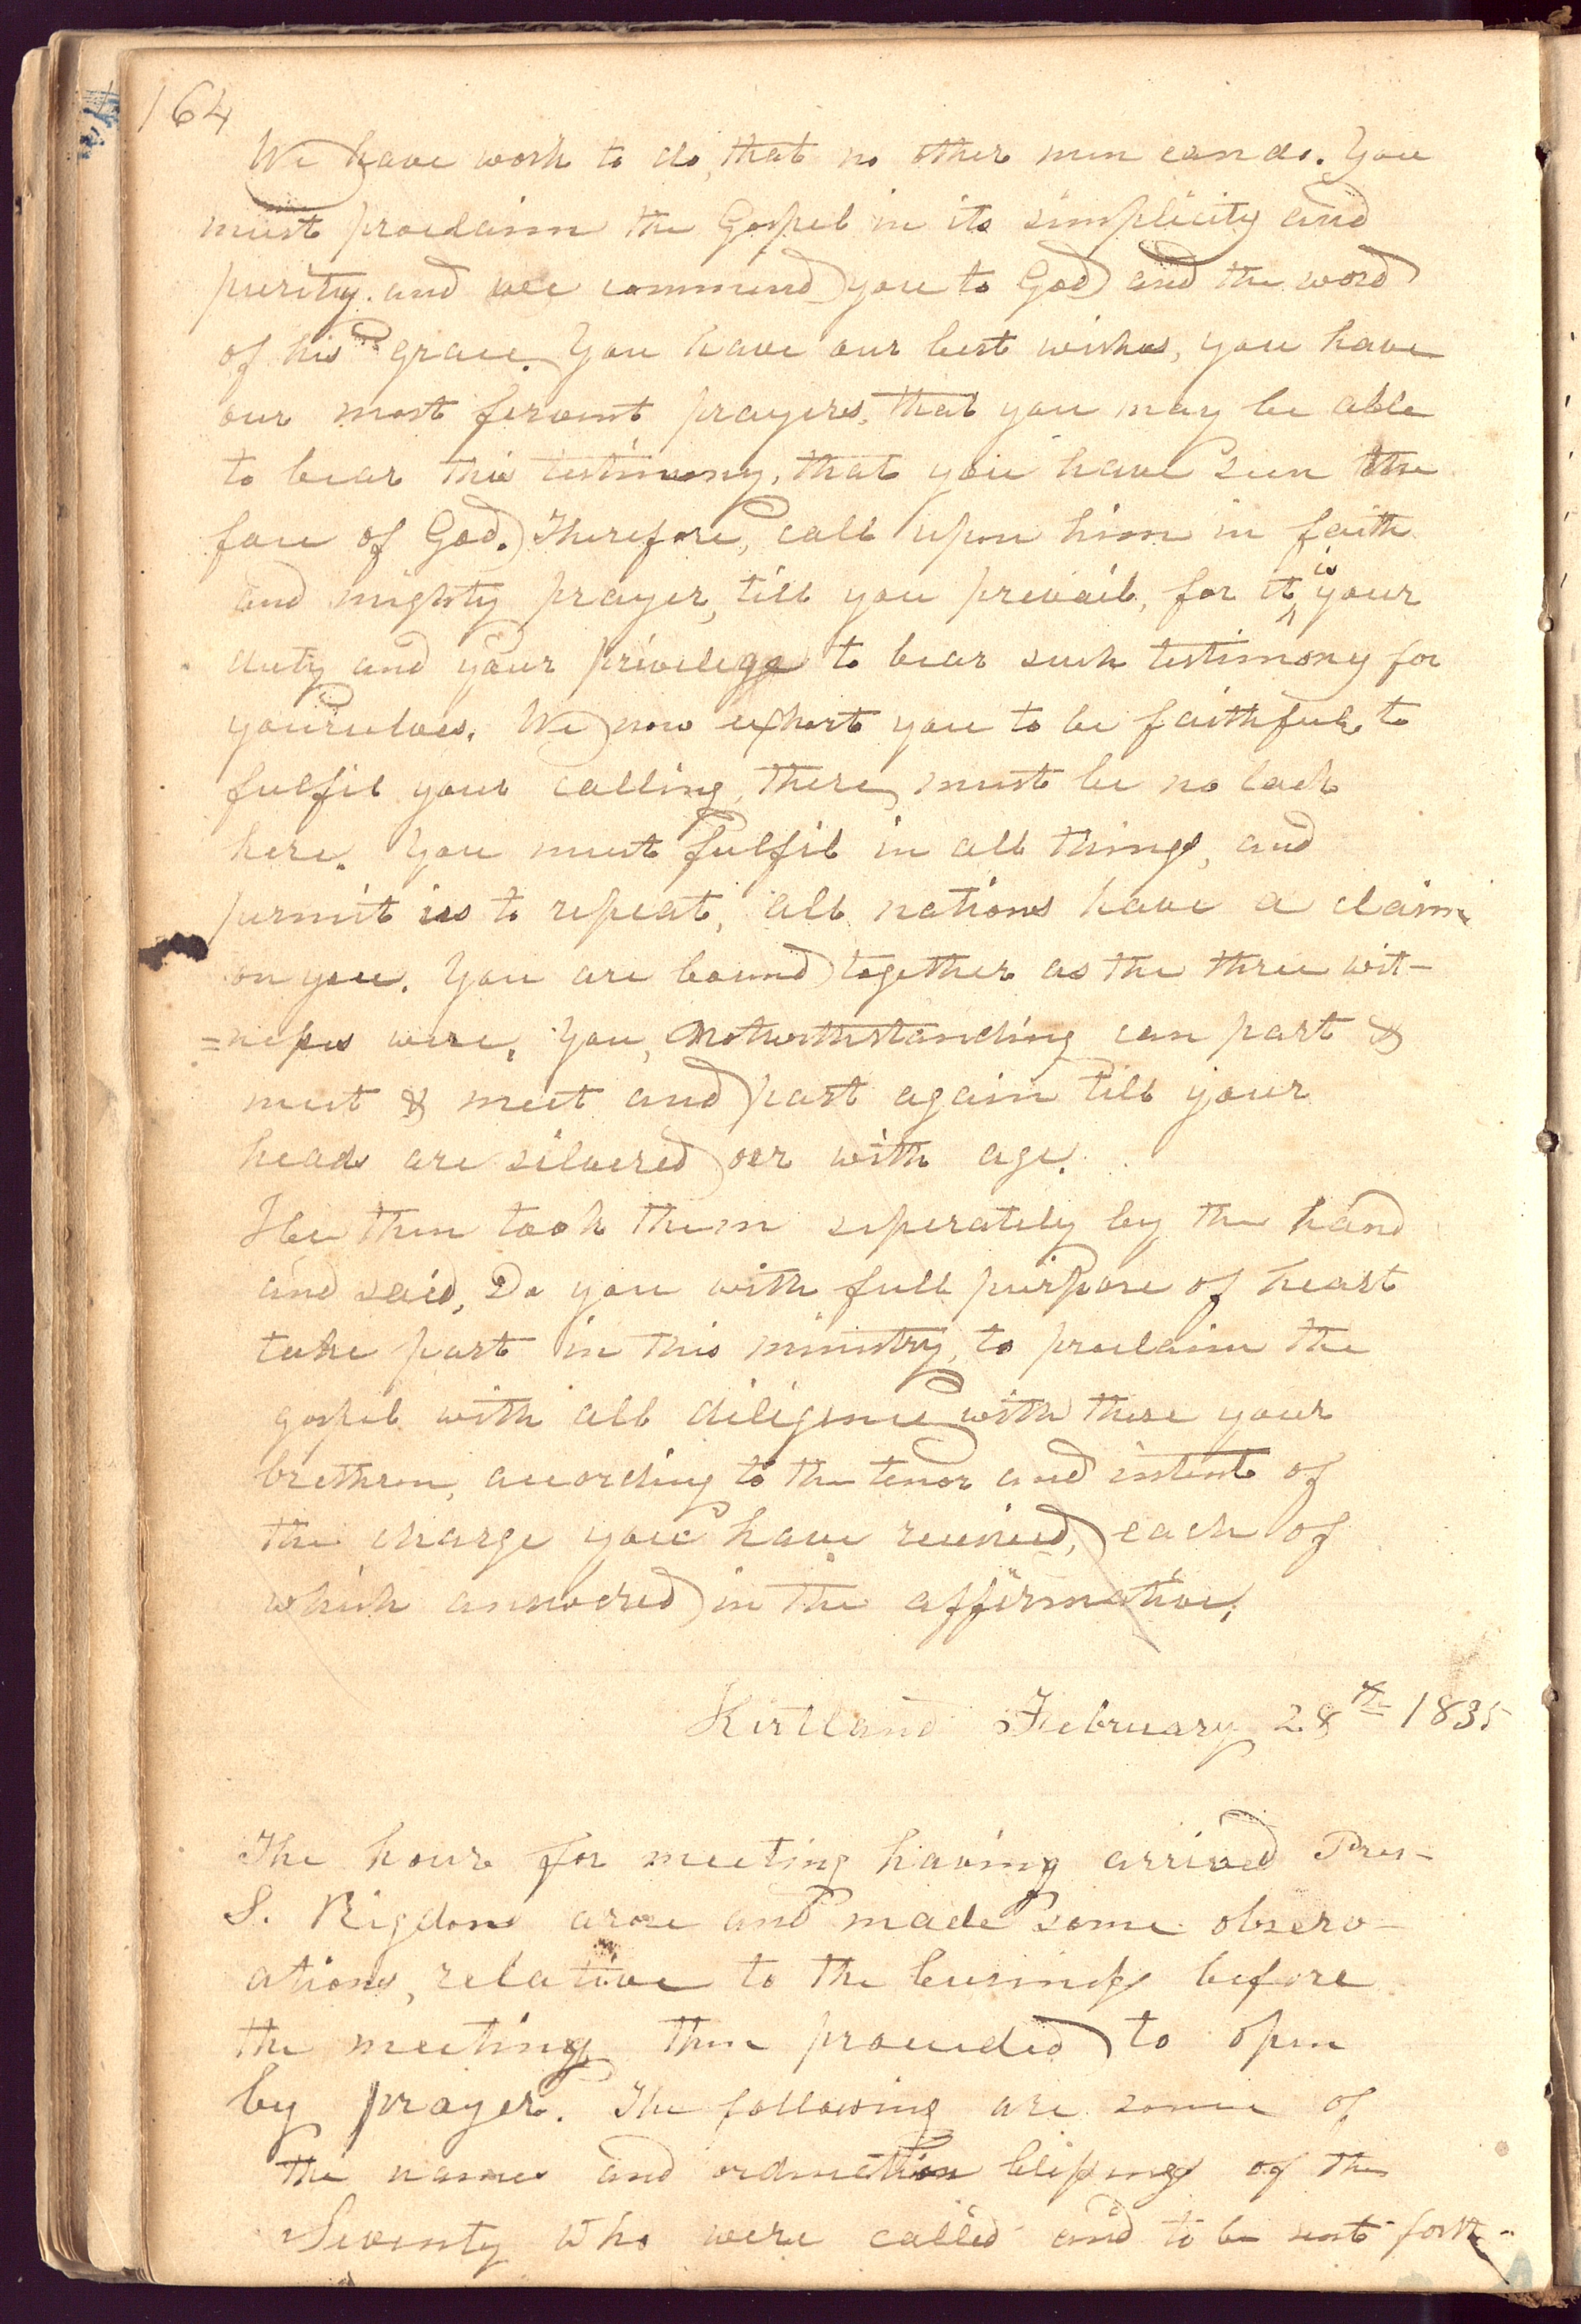 164
We have work to do, that no other men can do. You
must proclaim the Gospel in its simplicity and
purity. and we commend you to God and the word
of his grace. You have our best wishes, you have
our most fervent prayers, that you may be able
to bear this testimony, that you have seen the
face of God. Therefore, call upon him in faith
and mighty prayer, till you prevail, for it ^is your
duty and your privilege to bear such testimony for
yourselves. We now exhort you to be faithful, to
fulfil your calling, there must be no lack
here. You must fulfil in all things, and
permit us to repeat, all nations have a claim
on you. You are bound together as the three wit-
=nesses were. You, Notwithstanding can part &
meet & meet and part again till your
heads are silvered oer with age.
He then took them seperately by the hand
and said, Do you with full purpose of heart
take part in this ministry, to proclaim the
gospel with all diligence with these your
brethren, according to the tenor and intent of
the charge you have received, each of
which answered in the affirmative.
Kirtland February 28th 1835
The hour for meeting having arrived Pres-
S. Rigdon arose and made some observ-
ations, relative to the business before
the meeting then proceeded to open
by prayer. The following are some of
the names and blessings of the
Seventy who were called and to be sent forth-